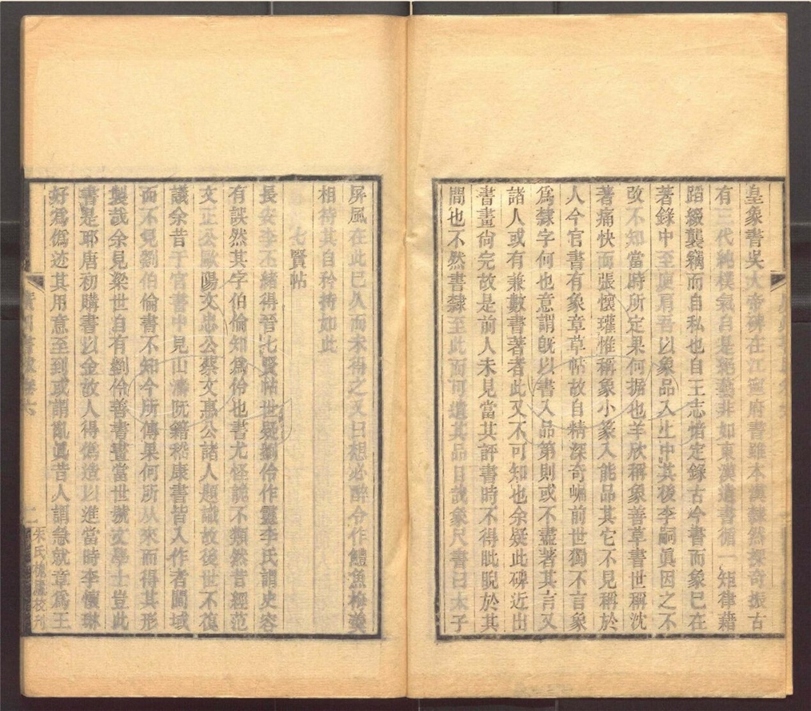 皇象書吳大帝碑在江寧府書雖本漢隸然探奇振古
有三代純樸氣自是絕藝非如東漢遺書循一矩律藉
蹈綴襲竊而自私也自王志愔定錄古今書而象已在
著錄中至庾肩吾以象品入上中其後李嗣眞因之不
攺不知當時所定果何據也羊欣稱象善草書世稱沈
著痛快而張懷瓘惟稱象小篆入能品其它不見稱於
人今官書有象章草帖故自精深奇崛前世獨不言象
爲隸字何也意謂旣以書入品第則或不盡著其言又
諸人或有兼數書著者此又不可知也余疑此碑近出
書畫尙完故是前人未見當其評書時不得眦睨於其
間也不然書隸至此而可遺其品目哉象尺書曰太子
屏風在此已久而未得之又曰想必醉令作鱧魚梅羹
相待其自矜持如此
七賢帖
長安李丕緒得晉七賢帖世疑劉伶作靈李氏謂史容
有誤然其字伯倫知爲伶也書尤怪詭不類然昔經范
文正公歐陽文忠公蔡文惠公諸人題識故後世不復
議余昔于官書中見山濤阮籍嵇康書皆入作者閫域
而不見劉伯倫書不知今所傳果何所從來而得其形
製哉余見梁世自有劉伶善書畫當世號文學士豈此
書是耶唐初購書以金故人得僞造以進當時李懷琳
好爲僞迹其用意至到或謂亂眞昔人謂急就章爲王
二
朱氏槐廬校刊